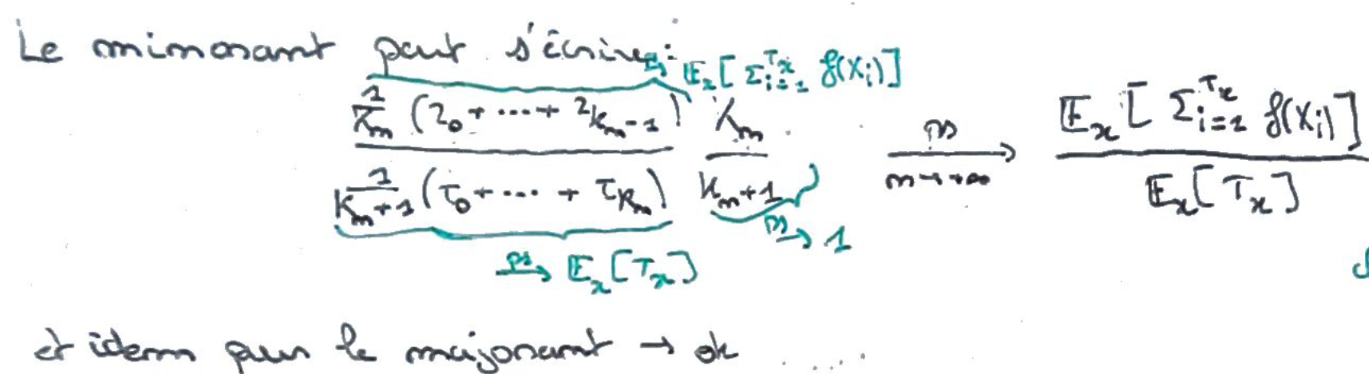 Le minorant peut s'écrire :
ps→ 𝔼_x[Σ_{i=1}^{T_x} f(X_i)]
\frac{\frac{1}{K_m}(Z_0 + ⋯ + Z_{K_m-1})}{\frac{1}{K_m+1}(τ_0 + ⋯ + τ_{K_m})} \frac{K_m}{K_m+1} \xrightarrow[m→+∞]{ps} \frac{𝔼_x[Σ_{i=1}^{T_x} f(X_i)]}{𝔼_x[T_x]}
ps→ 1
ps→ 𝔼_x[T_x]
et idem pour le majorant → ok ....